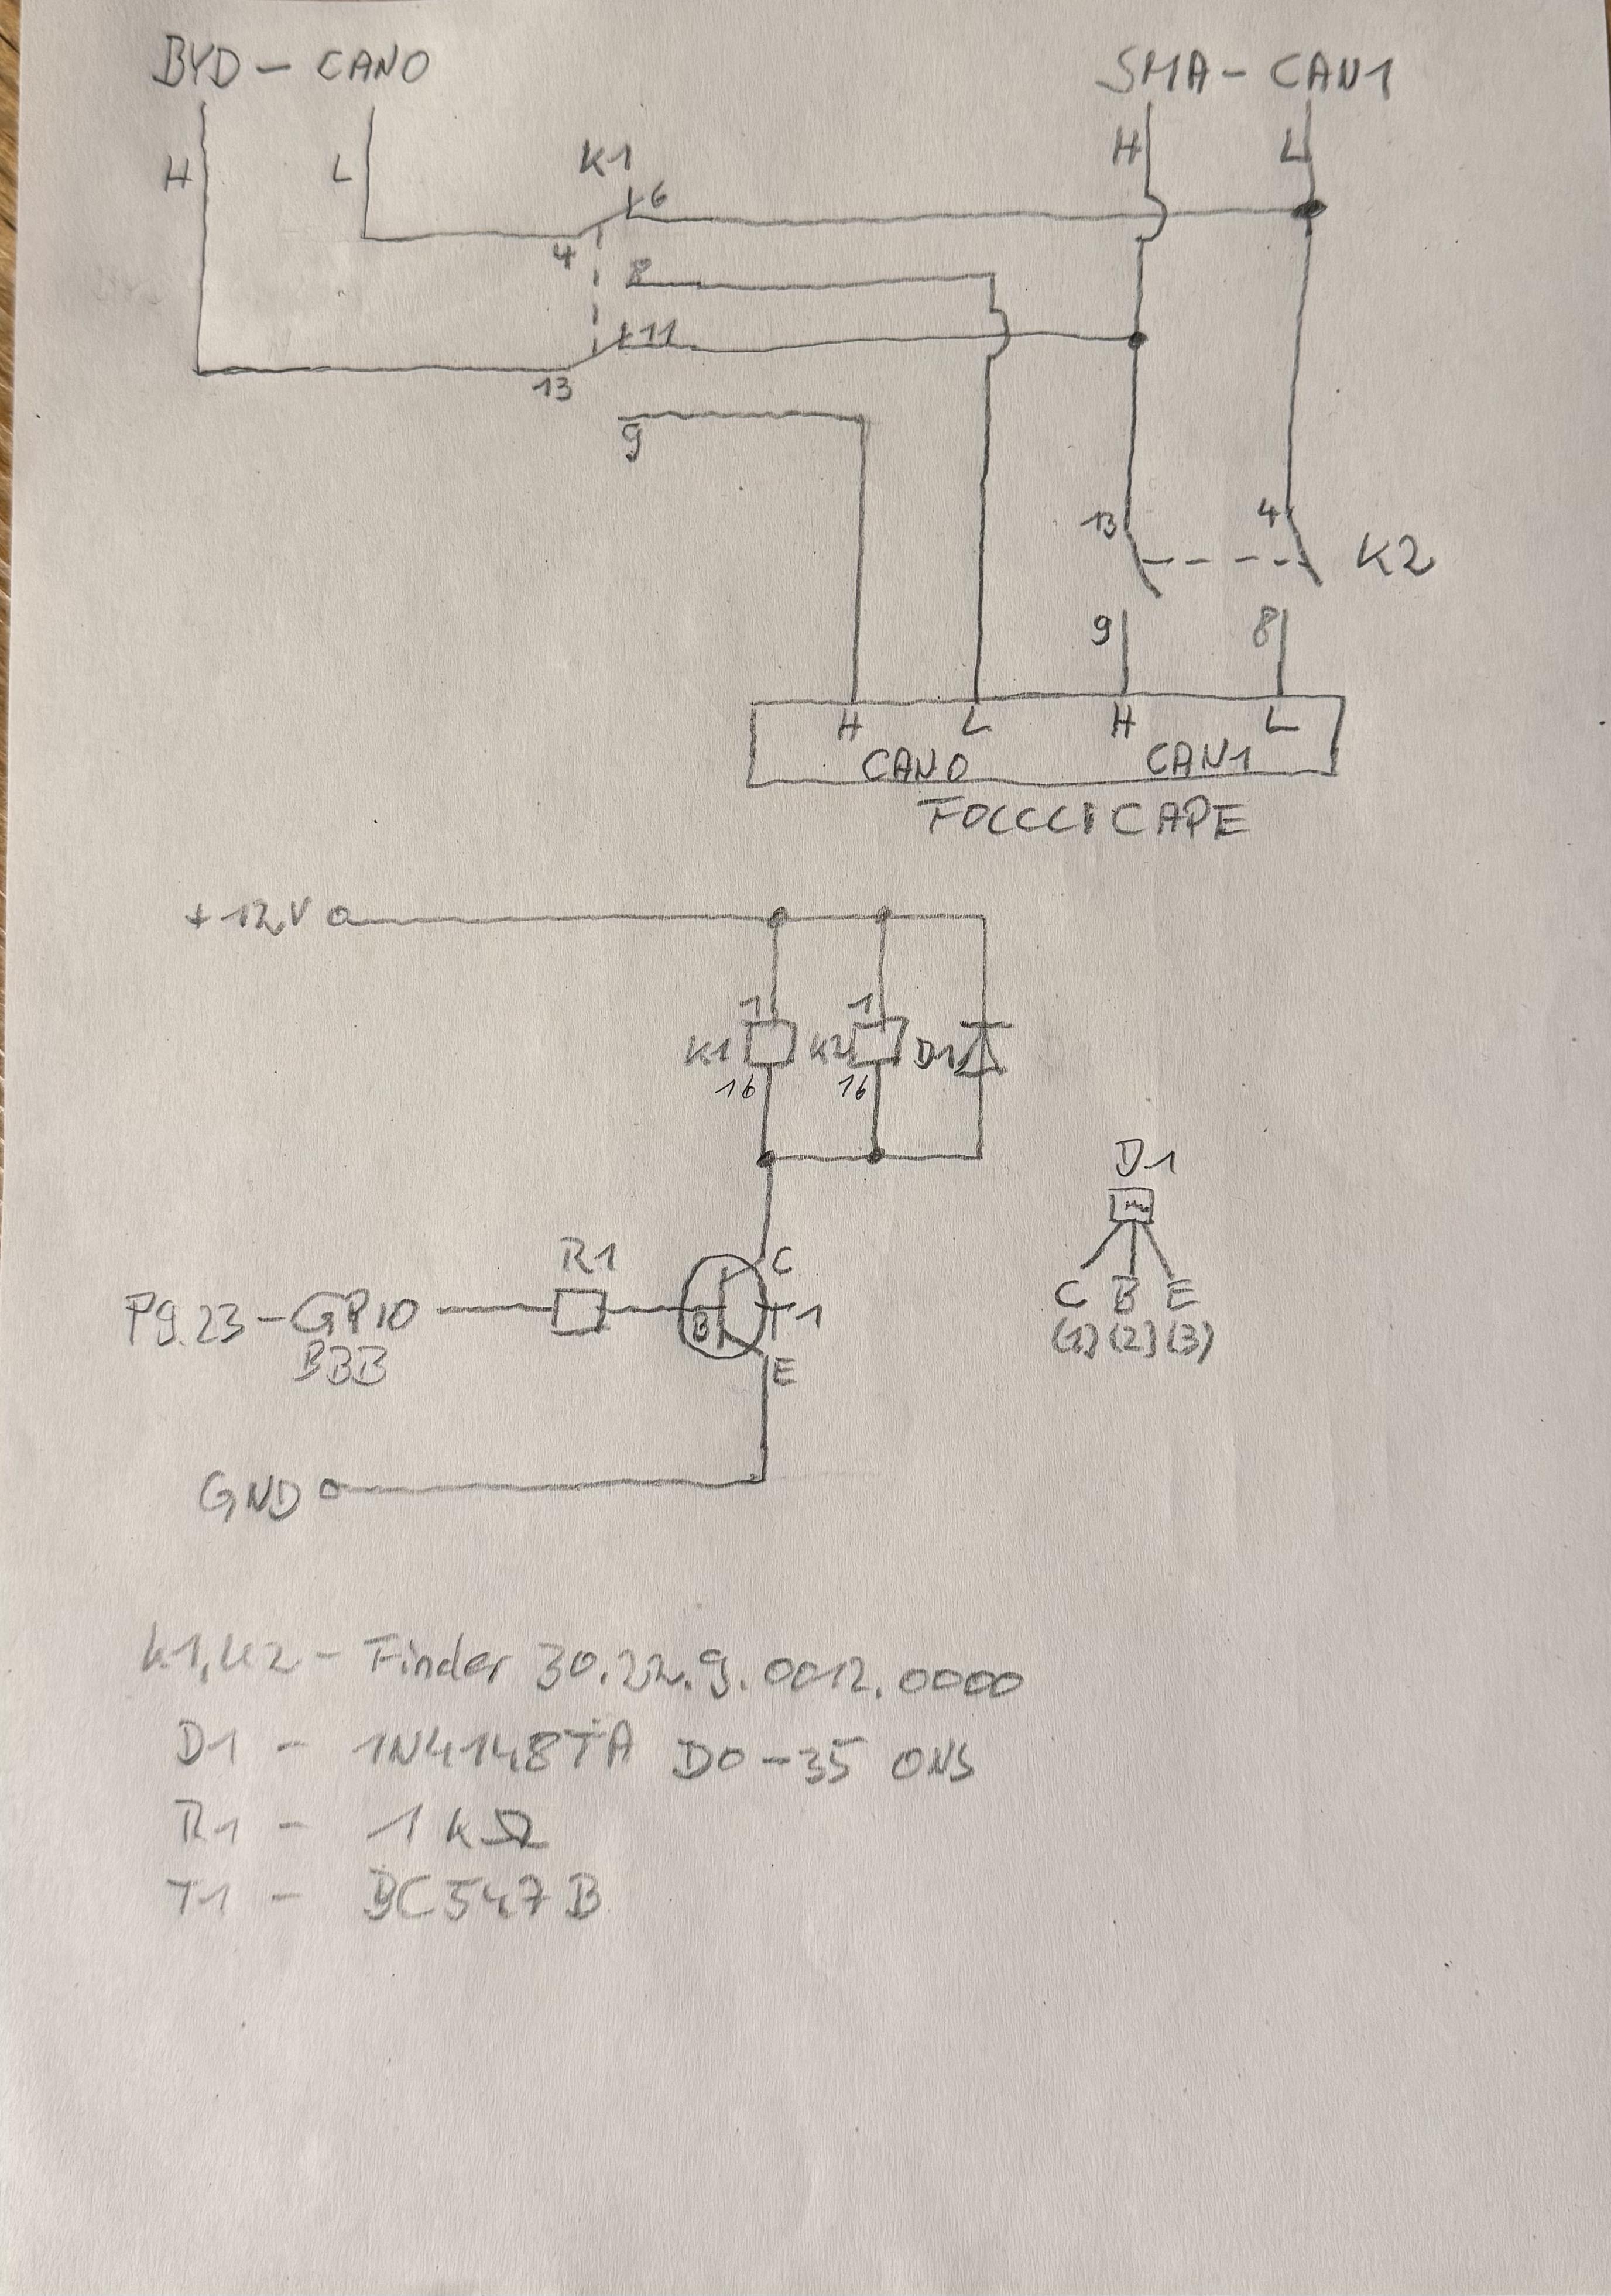 BYD - CAN0 SMA - CAN1
H L K1 H L
6
4
8
11
13
9
13 4 K2
9 8
H L H L
CAN0 CAN1
CAPE
+12V
1 1
K1 K2 D1
16 16
D1
R1 C
P9.23 - GPIO B T1 C B E
BBB E (1) (2) (3)
GND
K1, K2 - Finder 30.22.9.0012.0000
D1 - 1N4148TA DO-35 ONS
R1 - 1 kΩ
T1 - BC547B